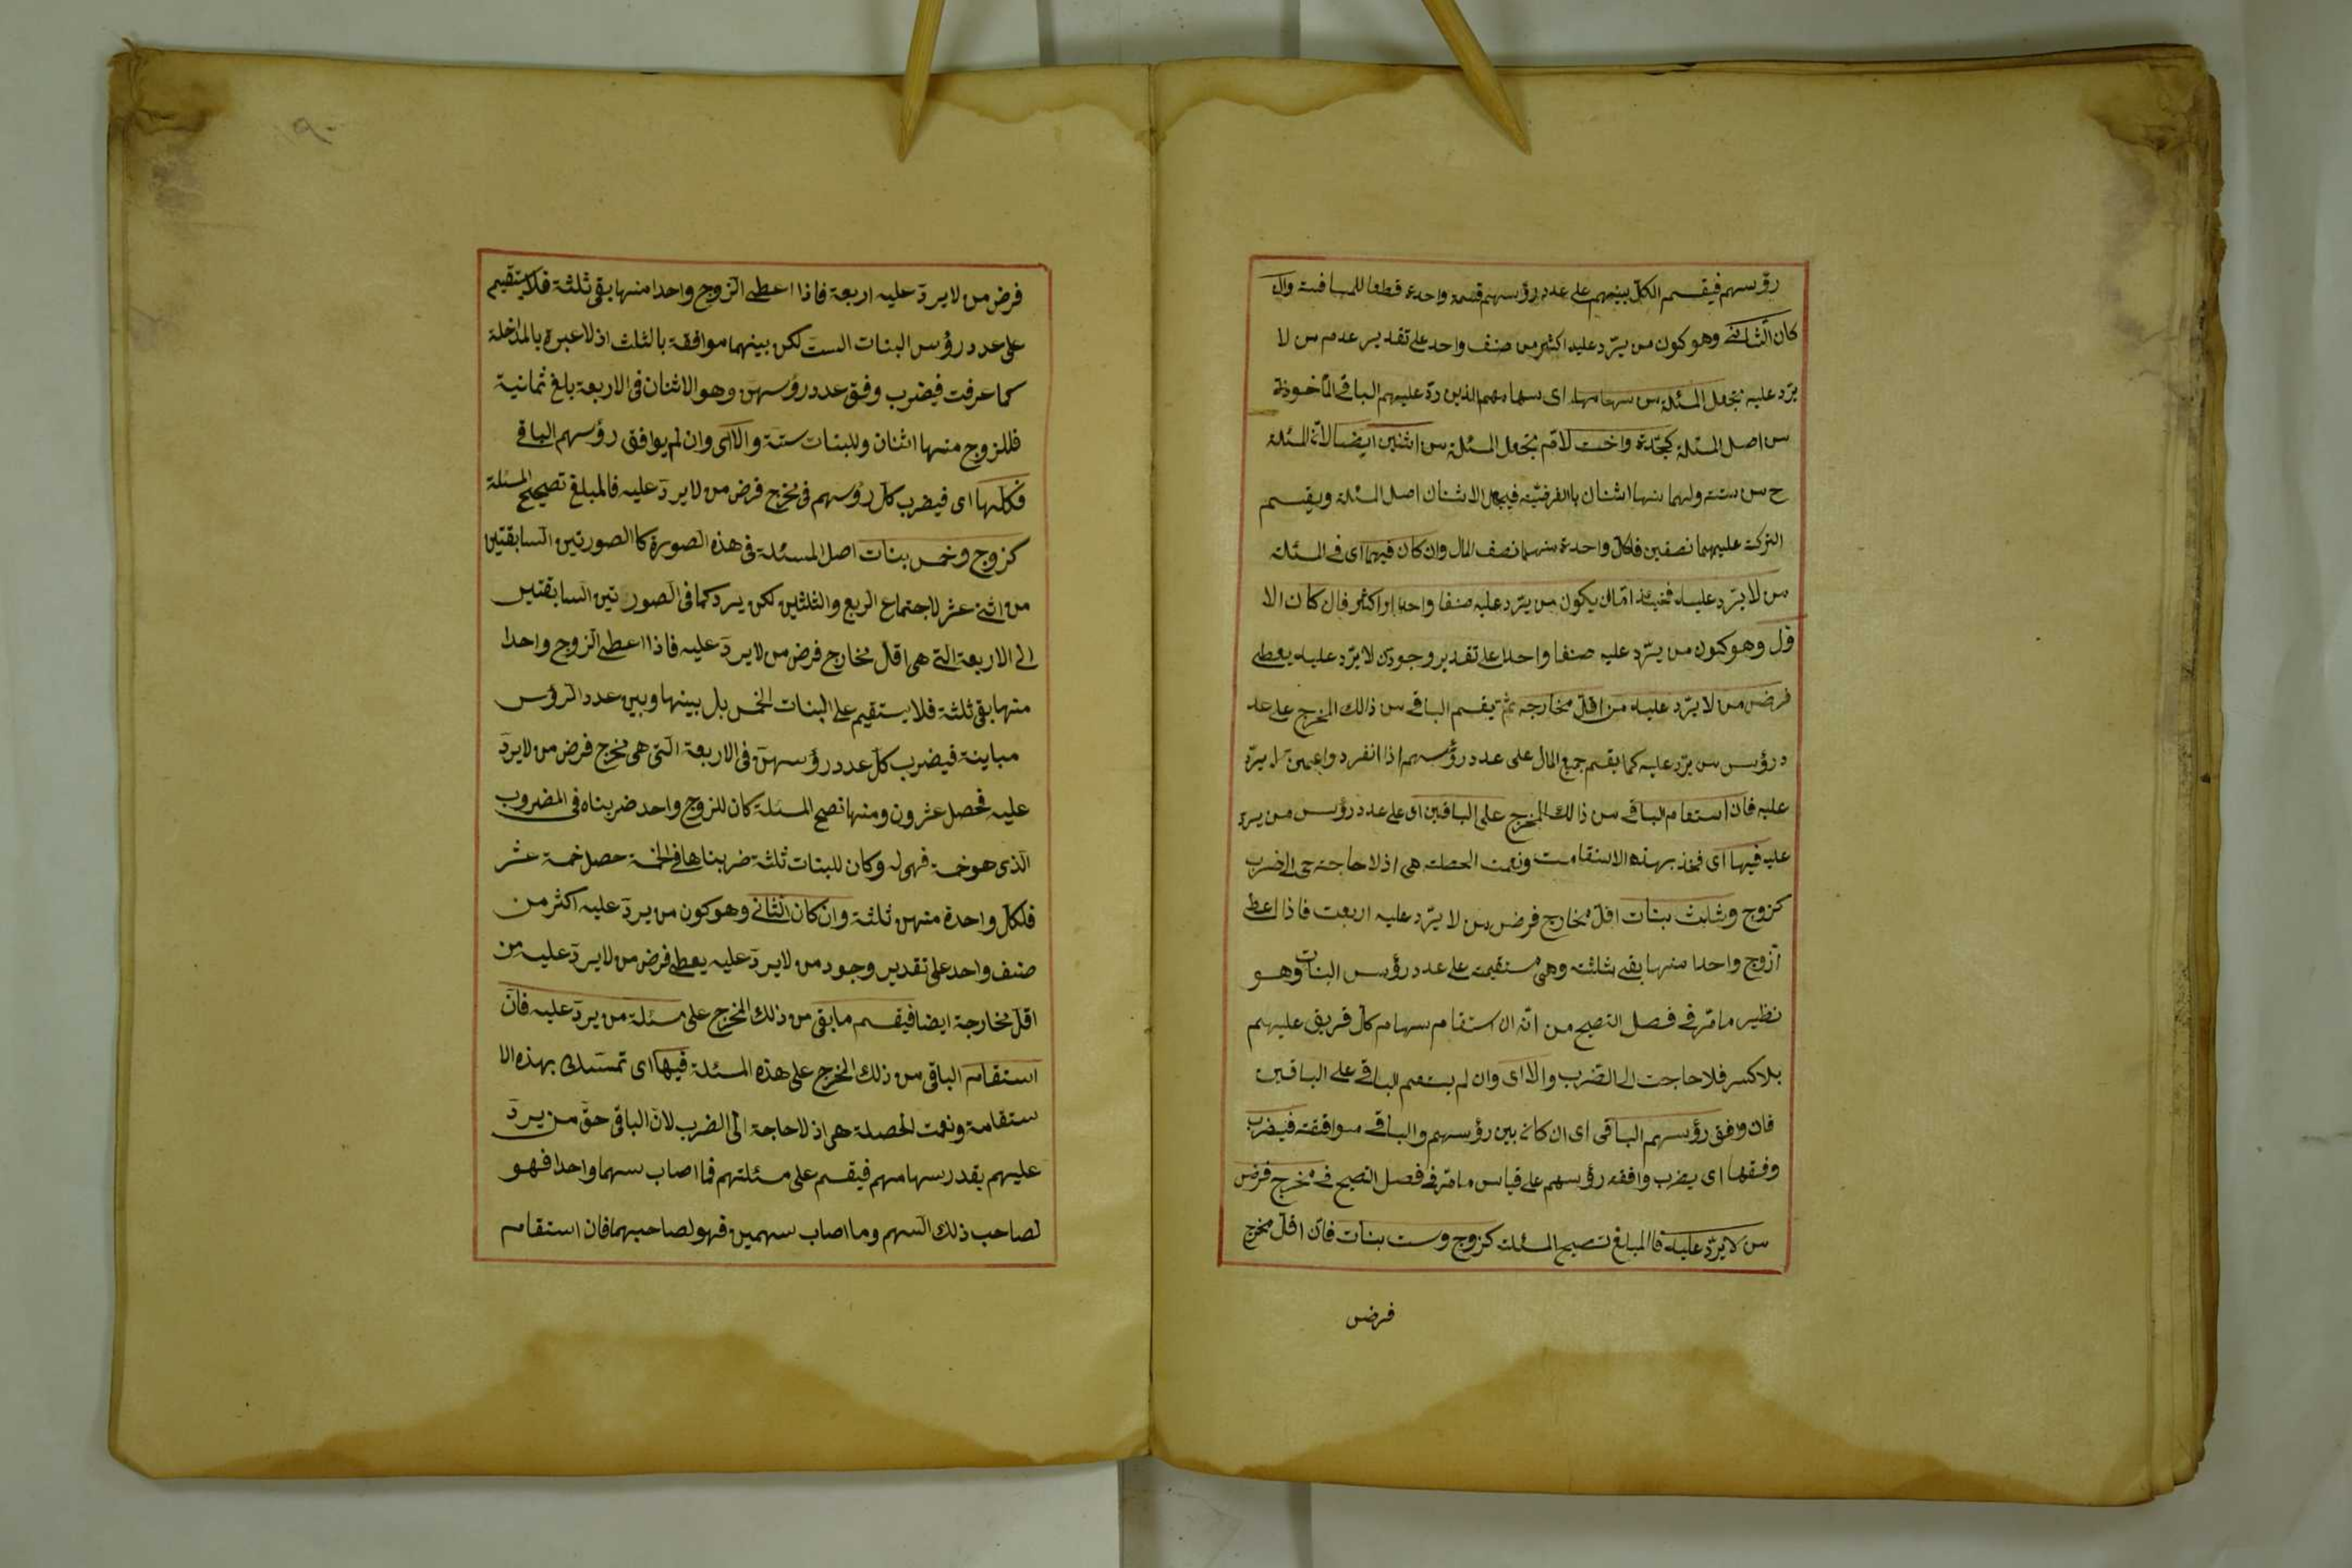 رؤسهم فيقسم الكل بينهم على عدد رؤسهم قسمة واحدة قطعا للمسافة وان
كان الثاني وهو كون من يرد عليه اكثر من صنف واحد على تقدير عدم من لا
يرد عليه تجعل المسئلة من سهامهم اى سهامهم الذين رد عليهم الباقي المأخوذة
من اصل المسئلة كجدة واخت لام تجعل المسئلة من اثنين ايضا لان المسئلة
ح من ستة ولهما منها اثنان بالفرضية فيجعل الاثنان اصل المسئلة ويقسم
التركة عليهما نصفين فلكل واحدة منهما نصف المال وان كان فيهما اى في المسئلة
من لا يرد عليه فحينئذ اما ان يكون من يرد عليه صنفا واحدا او اكثر فان كان الا
ول وهو كون من يرد عليه صنفا واحدا على تقدير وجود من لا يرد عليه يعطى
فرض من لا يرد عليه من اقل مخارجه ثم يقسم الباقي من ذالك المخرج على عد
د رؤس من يرد عليه كما يقسم جميع المال على عدد رؤسهم اذا انفردوا عمن لا يرد
عليه فان استقام الباقي من ذالك المخرج على الباقين اى على عدد رؤس من يرد
عليه فيها اى فخذ بهذه الاستقامت ونعمت الخصلة هى اذ لا حاجة ح الى الضرب
كزوج وثلث بنات اقل مخارج فرض من لا يرد عليه اربعت فاذا اعطى
الزوج واحدا منها بقى ثلثة وهى مستقيمة على عدد رؤس البنات وهو
نظير ما مر في فصل التصحيح من انه ان استقام سهام كل فريق عليهم
بلا كسر فلا حاجت الى الضرب والا اى وان لم يستقم الباقي على الباقين
فان وافق رؤسهم الباقى اى ان كان بين رؤسهم والباقي موافقة فيضرب
وفقها اى يضرب وافقه رؤسهم على قياس ما مر في فصل التصحيح في مخرج فرض
من لا يرد عليه فالمبلغ تصحيح المسئلة كزوج وست بنات فان اقل مخرج
فرض
٩٠
فرض من لا يرد عليه اربعة فاذا اعطى الزوج واحدا منها بقى ثلثة فلا يستقيم
على عدد رؤس البنات الست لكن بينهما موافقة بالثلث اذ لا عبرة بالمداخلة
كما عرفت فيضرب وفق عدد رؤسهن وهو الاثنان فى الاربعة بلغ ثمانية
فللزوج منها اثنان وللبنات ستة والا اى وان لم يوافق رؤسهم الباقي
فكلها اى فيضرب كل رؤسهم فى مخرج فرض من لا يرد عليه فالمبلغ تصحيح المسئلة
كزوج وخمس بنات اصل المسئلة فى هذه الصورة كالصورتين السابقتين
من اثنى عشر لاجتماع الربع والثلثين لكن يرد كما فى الصورتين السابقتين
الى الاربعة التى هى اقل مخارج فرض من لا يرد عليه فاذا اعطى الزوج واحدا
منها بقى ثلثة فلا يستقيم على البنات الخمس بل بينها وبين عدد الرؤس
مباينة فيضرب كل عدد رؤسهن فى الاربعة التى هى مخرج فرض من لا يرد
عليه فحصل عشرون ومنها تصح المسئلة كان للزوج واحد ضربناه فى المضروب
الذى هو خمسة فهى له وكان للبنات ثلثة ضربناها في الخمسة حصل خمسة عشر
فلكل واحدة منهن ثلثة وان كان الثانى وهو كون من يرد عليه اكثر من
صنف واحد على تقدير وجود من لا يرد عليه يعطى فرض من لا يرد عليه من
اقل مخارجة ايضا فيقسم ما بقى من ذلك المخرج على مسئلة من يرد عليه فان
استقام الباقى من ذلك المخرج على هذه المسئلة فيها اى تمسك بهذه الا
ستقامة ونعمت الخصلة هى اذ لا حاجة الى الضرب لان الباقى حق من يرد
عليهم بقدر سهامهم فيقسم على مسئلتهم فما اصاب سهما واحدا فهو
لصاحب ذلك السهم وما اصاب سهمين فهو لصاحبهما فان استقام